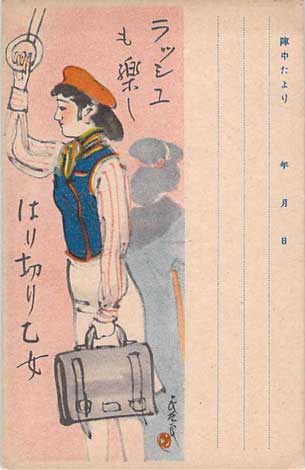 陣中だより
年 月 日
ラッシュ
も楽し
はり切り乙女